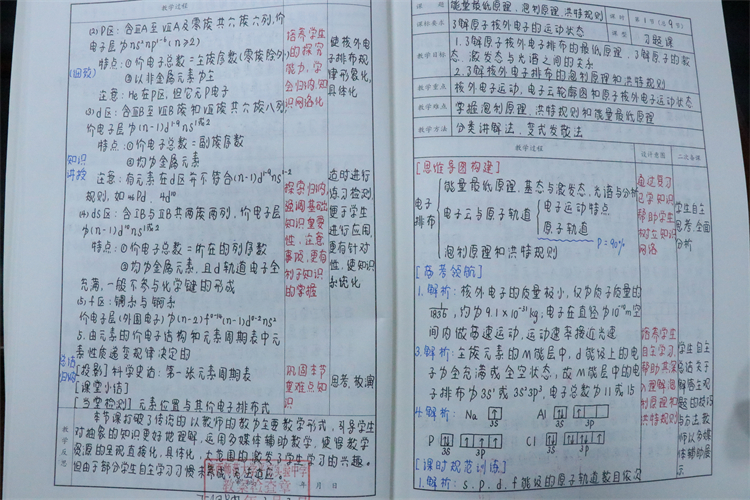 教学过程
(2)P区：含ⅢA至ⅦA及零族共六族六列,价
电子层为ns²np¹⁻⁶(n≥2)
特点：①价电子总数=主族序数(零族除外)
②以非金属元素为主
注意：He在P区，但它无P电子
(3)d区：含ⅢB至ⅦB族和Ⅷ族共六族八列,
价电子层为(n-1)d¹⁻⁹ns¹⁻²
特点：①价电子总数=副族序数
②均为金属元素
注意：有元素在d区并不符合(n-1)d¹⁻⁹ns¹⁻²
规则，如₄₆Pd，4d¹⁰
(4)ds区：含ⅠB与ⅡB共两族两列，价电子层
为(n-1)d¹⁰ns¹⁻²
特点：①价电子总数=所在的列序数
②均为金属元素，且d轨道电子全
充满，一般不参与化学键的形成
(5)f区：镧系与锕系
价电子层(外围电子)为(n-2)f⁰⁻¹⁴(n-1)d⁰⁻²ns²
5.由元素的价电子结构和元素周期表中元
素性质递变规律决定的
[投影]科学史话：第一张元素周期表
[课堂小结]
[当堂检测]元素位置与其价电子排布式
知识
讲授
总结
归纳
培养学生
的探究
能力，学
会归纳知
识网络化
探究归纳,
强调基础
知识重要
性，注意
事项，更有
利于知识
的掌握
巩固本节
重难点知
识
使核外电
子排布规
律形象化,
具体化
适时进行
练习检测,
更于学生
进行应用,
更有针对
性，使知识
系统化
思考，板演
教学反思
本节课打破了传统的以教师的教为主要教学形式，引导学生
对抽象的知识更好地理解，运用多媒体辅助教学，使得教学
资源的呈现直接化，具体化，大范围的激发了学生学习的兴趣。
但由于部分学生自主学习习惯
年 月 日
课题 能量最低原理，泡利原理，洪特规则 课时 第1节(总9节)
课标要求 了解原子核外电子的运动状态 课型 习题课
教学目标 1.了解原子核外电子排布的最低原理，了解原子的基
态，激发态与光谱之间的关系
2.了解核外电子排布的泡利原理和洪特规则
教学重点 核外电子运动，电子云轮廓图和原子核外电子运动状态
教学难点 掌握泡利原理，洪特规则和能量最低原理
教学方法 分类讲解法，变式发散法
教学过程 设计意图 二次备课
[思维导图构建]
电子
排布
能量最低原理，基态与激发态，光谱与分析
电子云与原子轨道
电子运动特点
原子轨道
P=90%
泡利原理和洪特规则
[高考领航]
1.解析：核外电子的质量极小，仅为质子质量的
1/1836，约为9.1×10⁻³¹kg；电子在直径为10⁻¹⁰m空
间内做高速运动，运动速率接近光速
3.解析：主族元素的M能层中，d能级上的电
子为全充满或全空状态，故M能层中的电
子排布为3S¹或3S²3P³，电子总数为11或15
4.解析：Na 3S Al 3S 3P
P 3S 3P Cl 3S 3P
[课时规范训练]
1.解析：s.p.d.f能级的原子轨道数目依次
通过复习
已学知识
帮助学生
树立知识
网络
学生自主
思考，全面
分析
培养学生
自主学习,